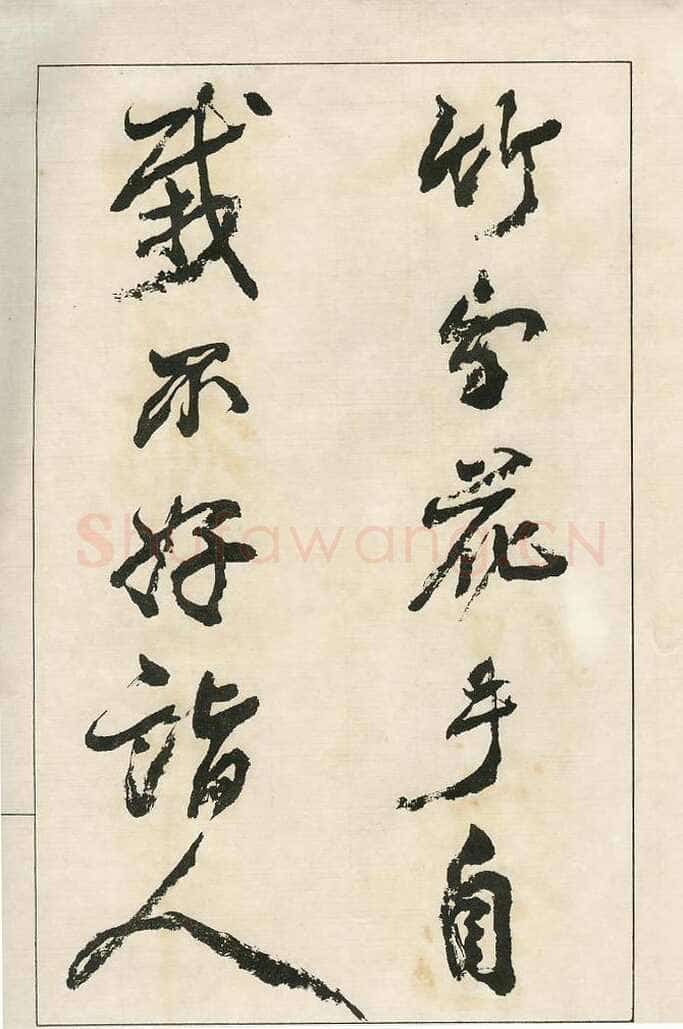 竹花手自
栽不好詣人
Shufawang.CN